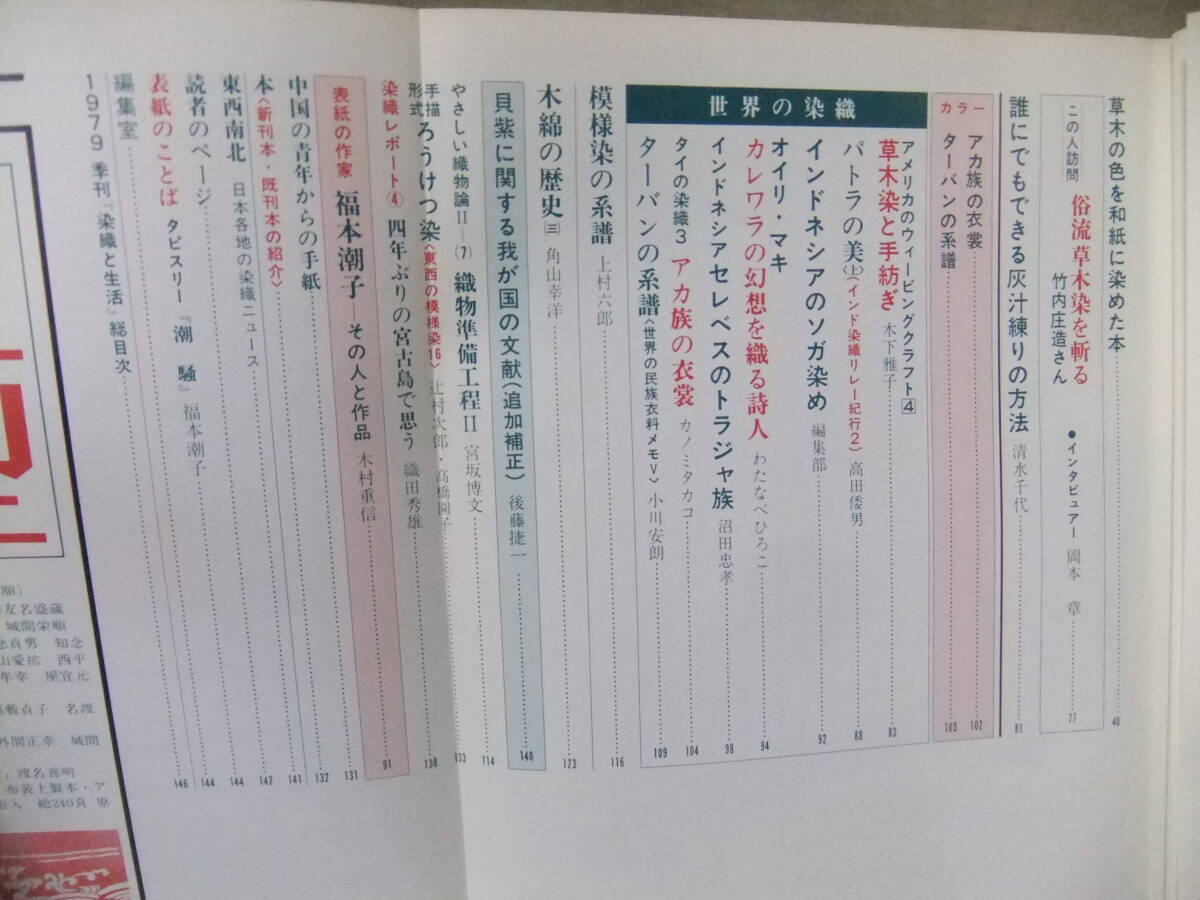 草木の色を和紙に染めた本 40
この人訪問 俗流草木染を斬る 竹内庄造さん ●インタビュアー 岡本 章 77
誰にでもできる灰汁練りの方法 清水千代 81
カラー
アカ族の衣裳 102
ターバンの系譜 103
世界の染織
アメリカのウィービングクラフト④
草木染と手紡ぎ 木下雅子 83
パトラの美(上)〈インド染織リレー紀行2〉 高田倭男 88
インドネシアのソガ染め 編集部 92
オイリ・マキ
カレワラの幻想を織る詩人 わたなべひろこ 94
インドネシアセレベスのトラジャ族 沼田忠孝 98
タイの染織3 アカ族の衣裳 カノミタカコ 104
ターバンの系譜〈世界の民族衣料メモV〉 小川安朗 109
模様染の系譜 上村六郎 116
木綿の歴史㈢ 角山幸洋 123
貝紫に関する我が国の文献(追加補正) 後藤捷一 140
やさしい織物論II―(7) 織物準備工程II 宮坂博文 114
手描形式ろうけつ染〈東西の模様染16〉 辻村次郎・高橋園子 133
染織レポート④ 四年ぶりの宮古島で思う 織田秀雄 138
表紙の作家 福本潮子―その人と作品 木村重信 91
中国の青年からの手紙 131
本〈新刊本・既刊本の紹介〉 132
東西南北 日本各地の染織ニュース 141
読者のページ 142
表紙のことば タピスリー『潮騒』福本潮子 144
編集室 144
1979 季刊『染織と生活』総目次 146
順)
友名盛蔵
城間栄順
念貞男 知念
山愛拡 西平
年幸 屋宜元
敷貞子 名渡
外間正幸 城間
」渡名喜明
布装上製本・ア
函入 総240頁 原